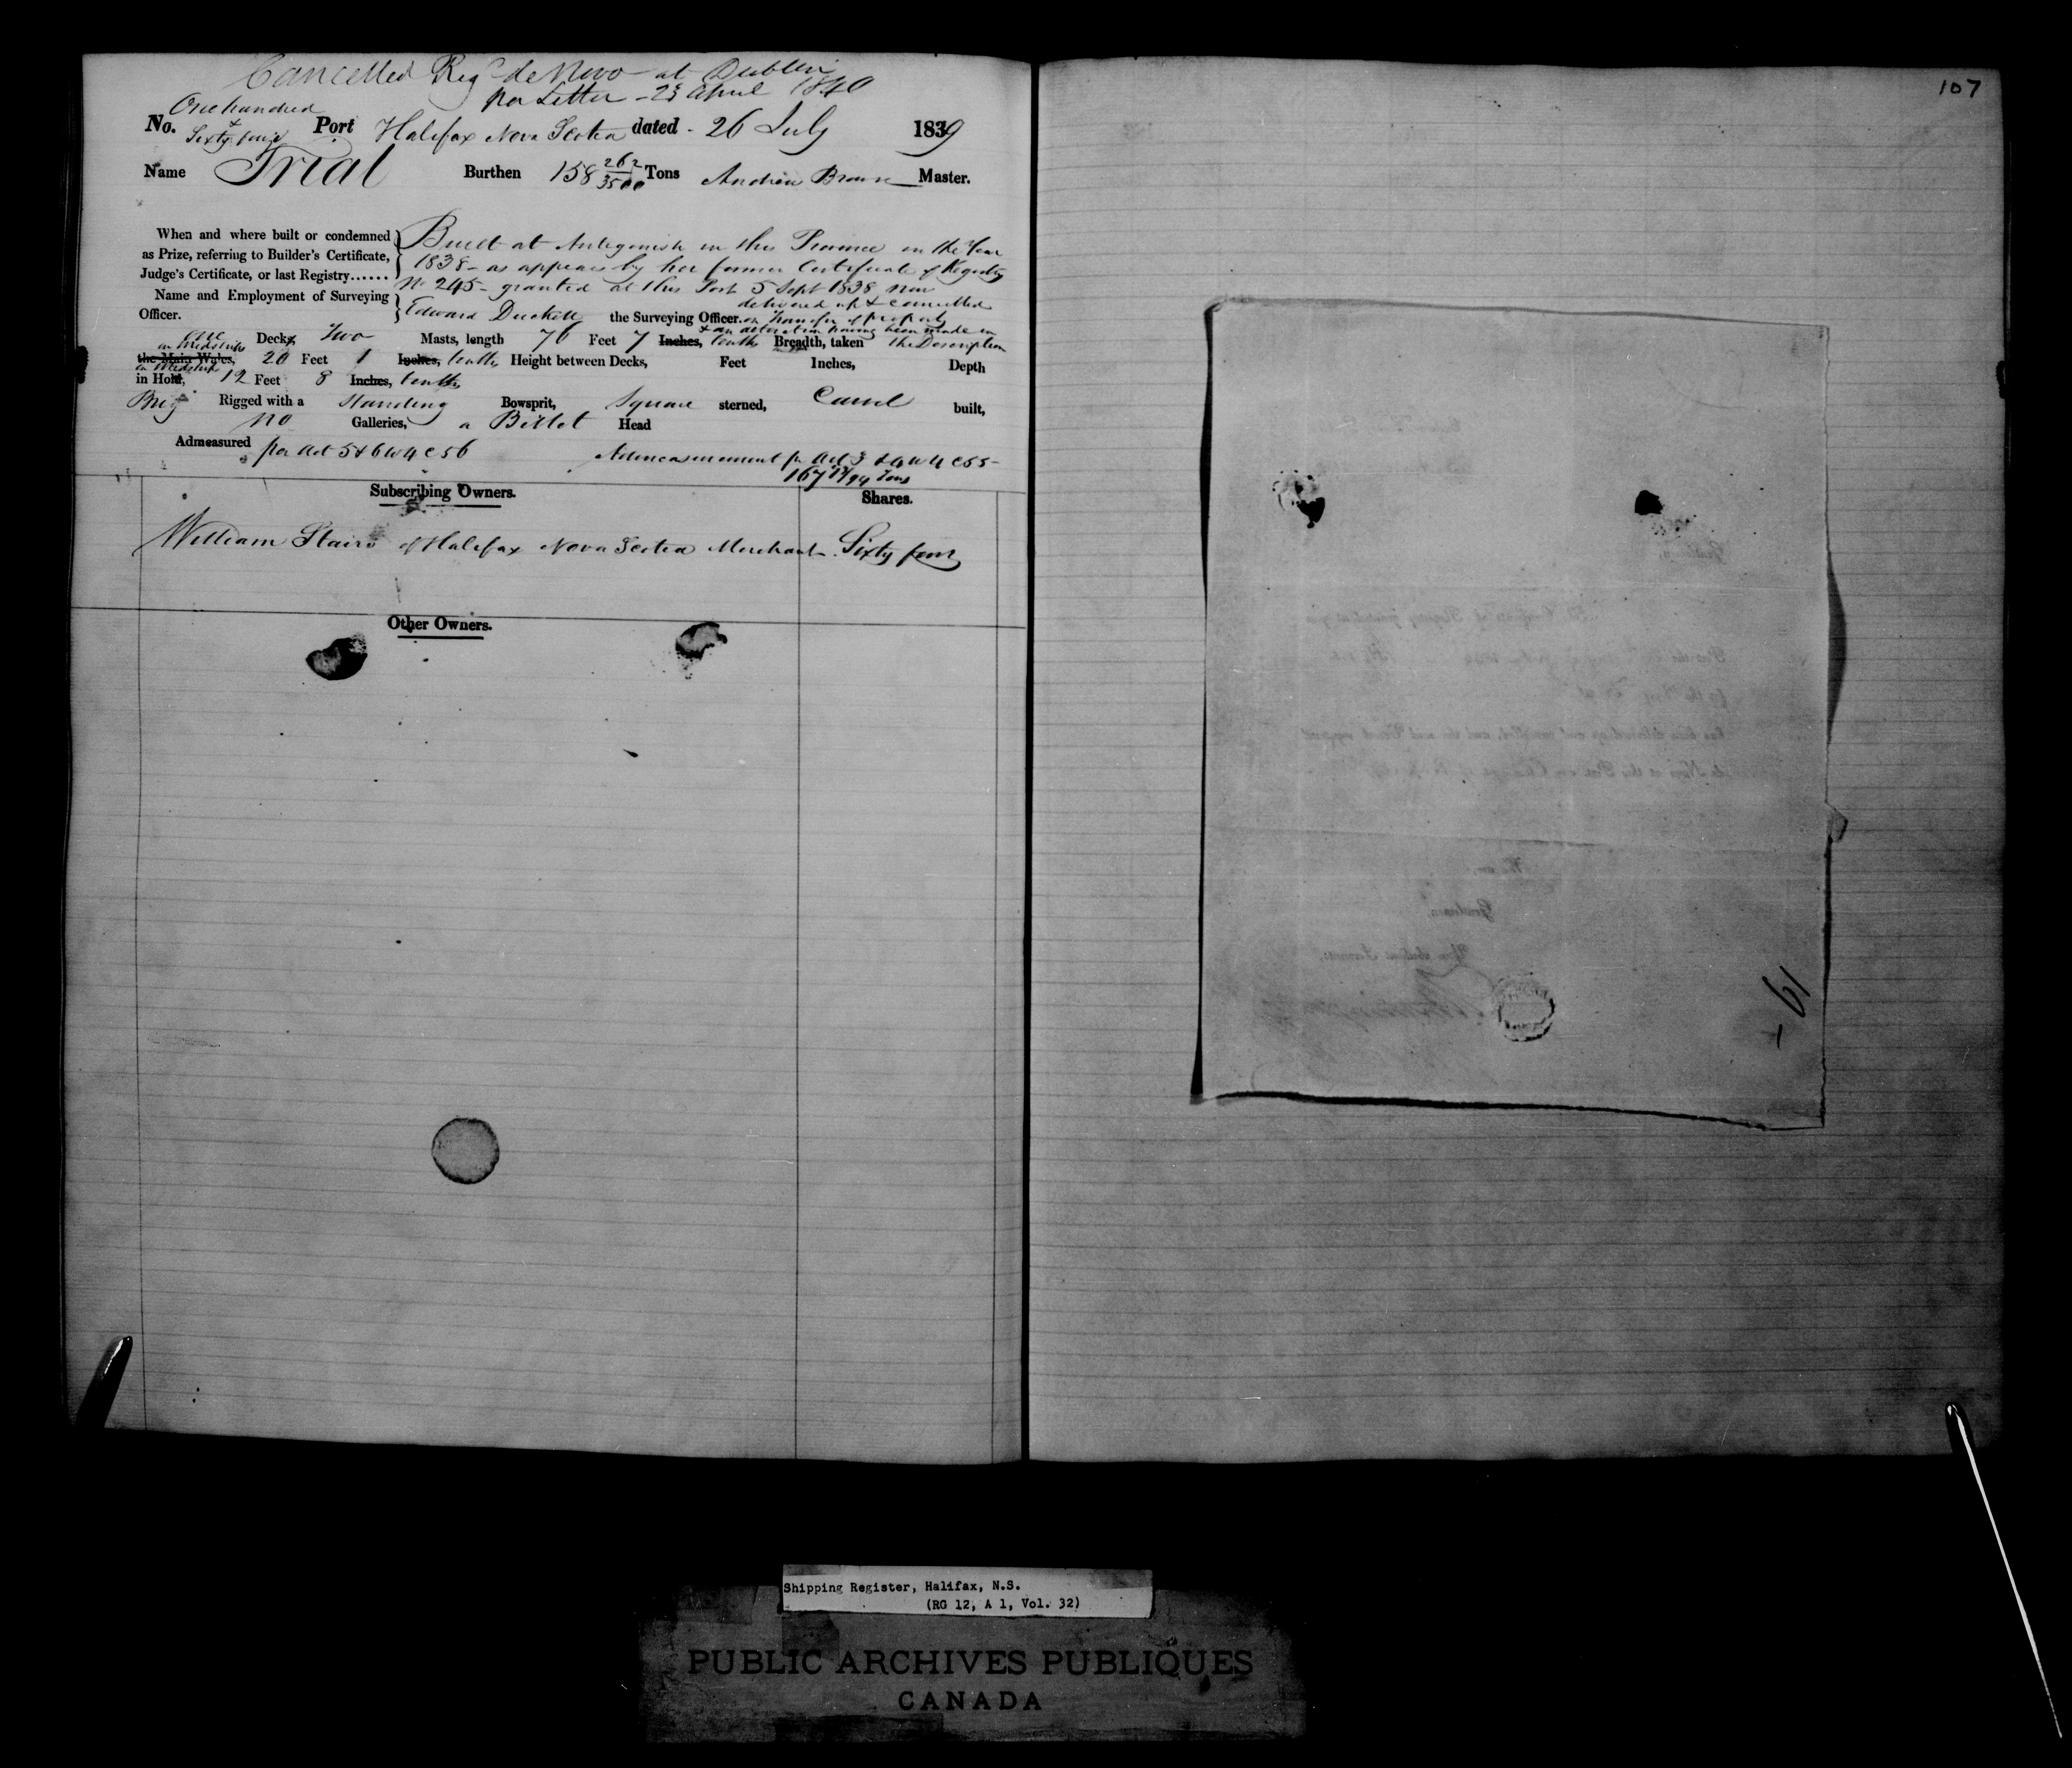 Cancelled Regd de Novo at Dublin
per Letter - 23 April 1840
One hundred
&
No. Sixty four Port Halifax Nova Scotia dated - 26 July 1839
Name Trial Burthen 158 262/3500 Tons Andrew Brown Master.
When and where built or condemned
as Prize, referring to Builder's Certificate,
Judge's Certificate, or last Registry......
Built at Antigonish in this Province in the Year
1838 - as appears by her former Certificate of Registry
No 245 - granted at this Port 5 Sept 1838 now
delivered up & cancelled
Name and Employment of Surveying
Officer.
Edward Duckett the Surveying Officer. on transfer of property
& an alteration having been made in
the Description
one Decks, Two Masts, length 76 Feet 7 Inches, tenths Breadth, taken
in Midships
the Main Wales, 20 Feet 1 Inches, tenths Height between Decks, Feet Inches, Depth
in Midships
in Hold, 12 Feet 8 Inches, tenths
Brig Rigged with a Standing Bowsprit, Square sterned, Carvel built,
no Galleries, a Billet Head
Admeasured per Act 5 & 6 W 4 C 56
Admeasurement pr Act 3 & 4 W 4 C 55 -
167 /94 Tons
Subscribing Owners. Shares.
William Stairs of Halifax Nova Scotia Merchant Sixty four
Other Owners.
107
Gentlemen,
19
Shipping Register, Halifax, N.S.
(RG 12, A 1, Vol. 32)
PUBLIC ARCHIVES PUBLIQUES
CANADA